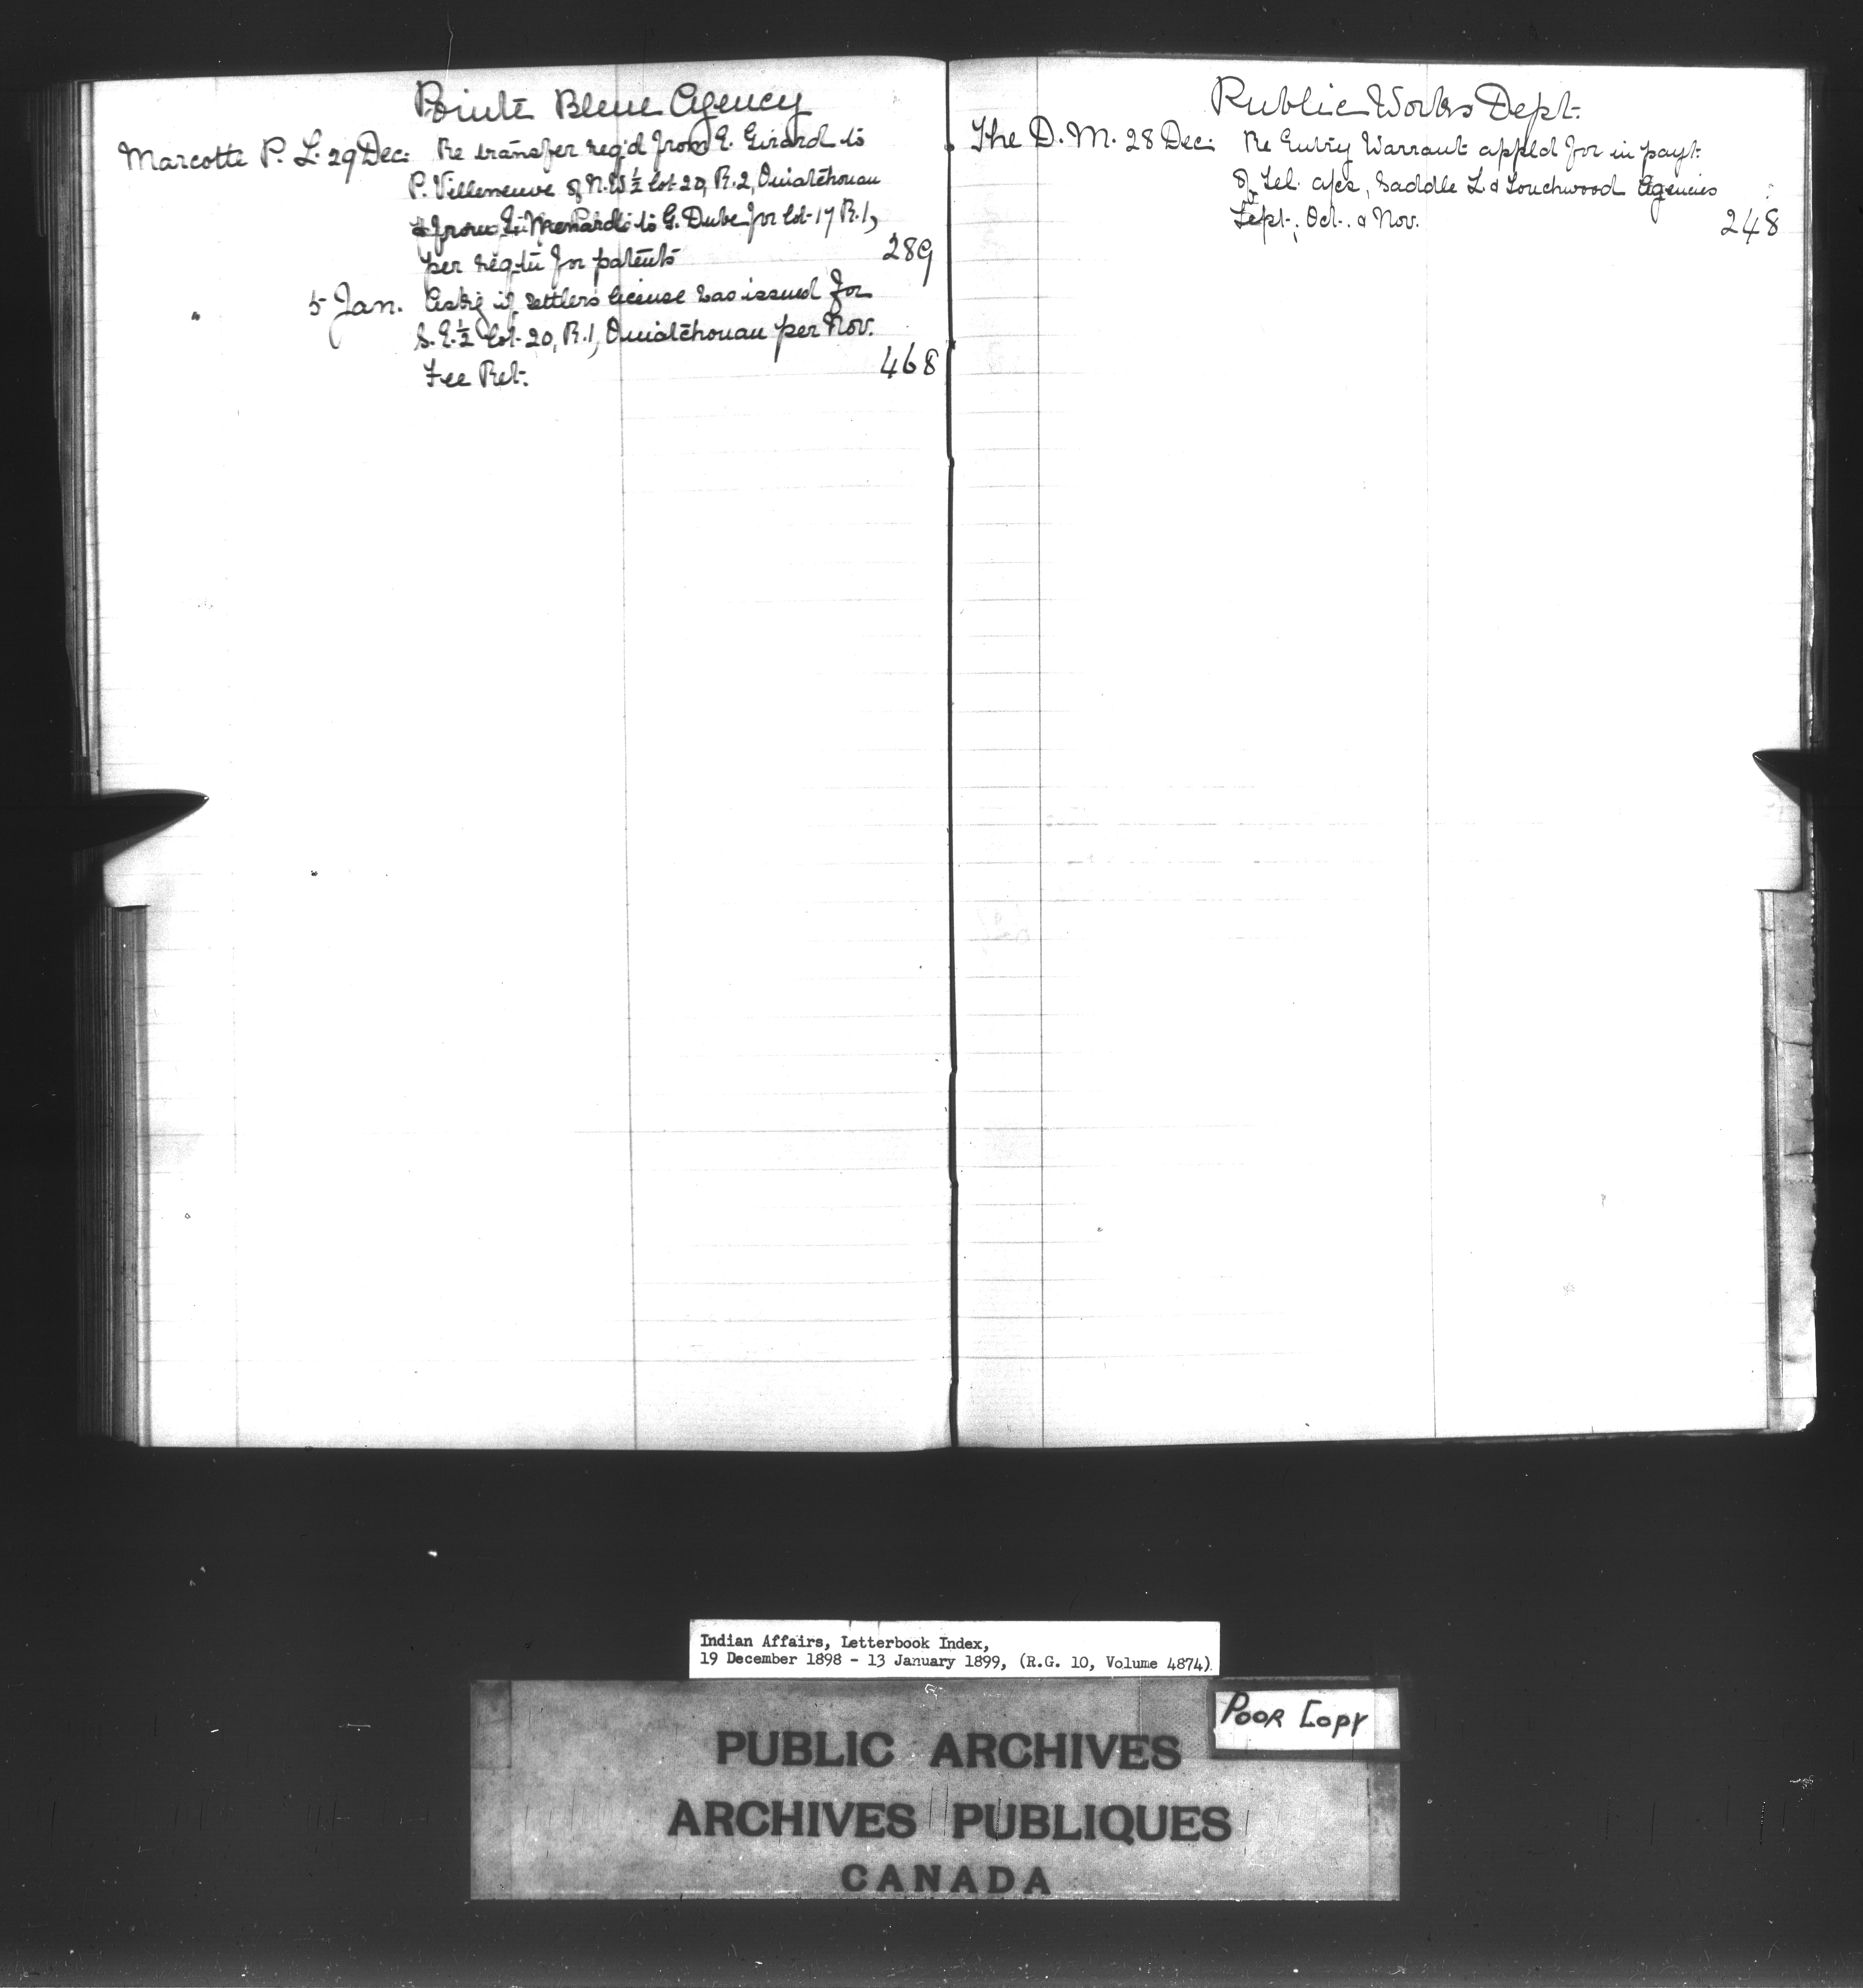 Pointe Bleue Agency
Marcotte P. L. 29 Dec. Re transfer reqd from E. Girard to
P. Villeneuve of N.W½ lot 20, R.2, Ouiatchouan
& from to G. Dube for lot 17 R.1,
per for patents 289
" 5 Jan. Askg if settlers license was issued for
S.E.½ lot 20, R.1, Ouiatchouan per Nov.
Fee Ret. 468
Public Works Dept.
The D. M. 28 Dec. Re Entry Warrant appld for in payt
of Tel. a/cs, Saddle L. & Touchwood Agencies
Sept., Oct. & Nov. 248
Indian Affairs, Letterbook Index,
19 December 1898 - 13 January 1899, (R.G. 10, Volume 4874)
POOR COPY
PUBLIC ARCHIVES
ARCHIVES PUBLIQUES
CANADA